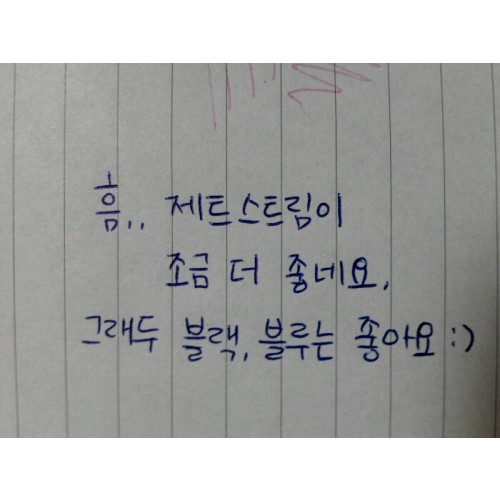 흠.. 제트스트림이
조금 더 좋네요.
그래두 블랙, 블루는 좋아요 :)